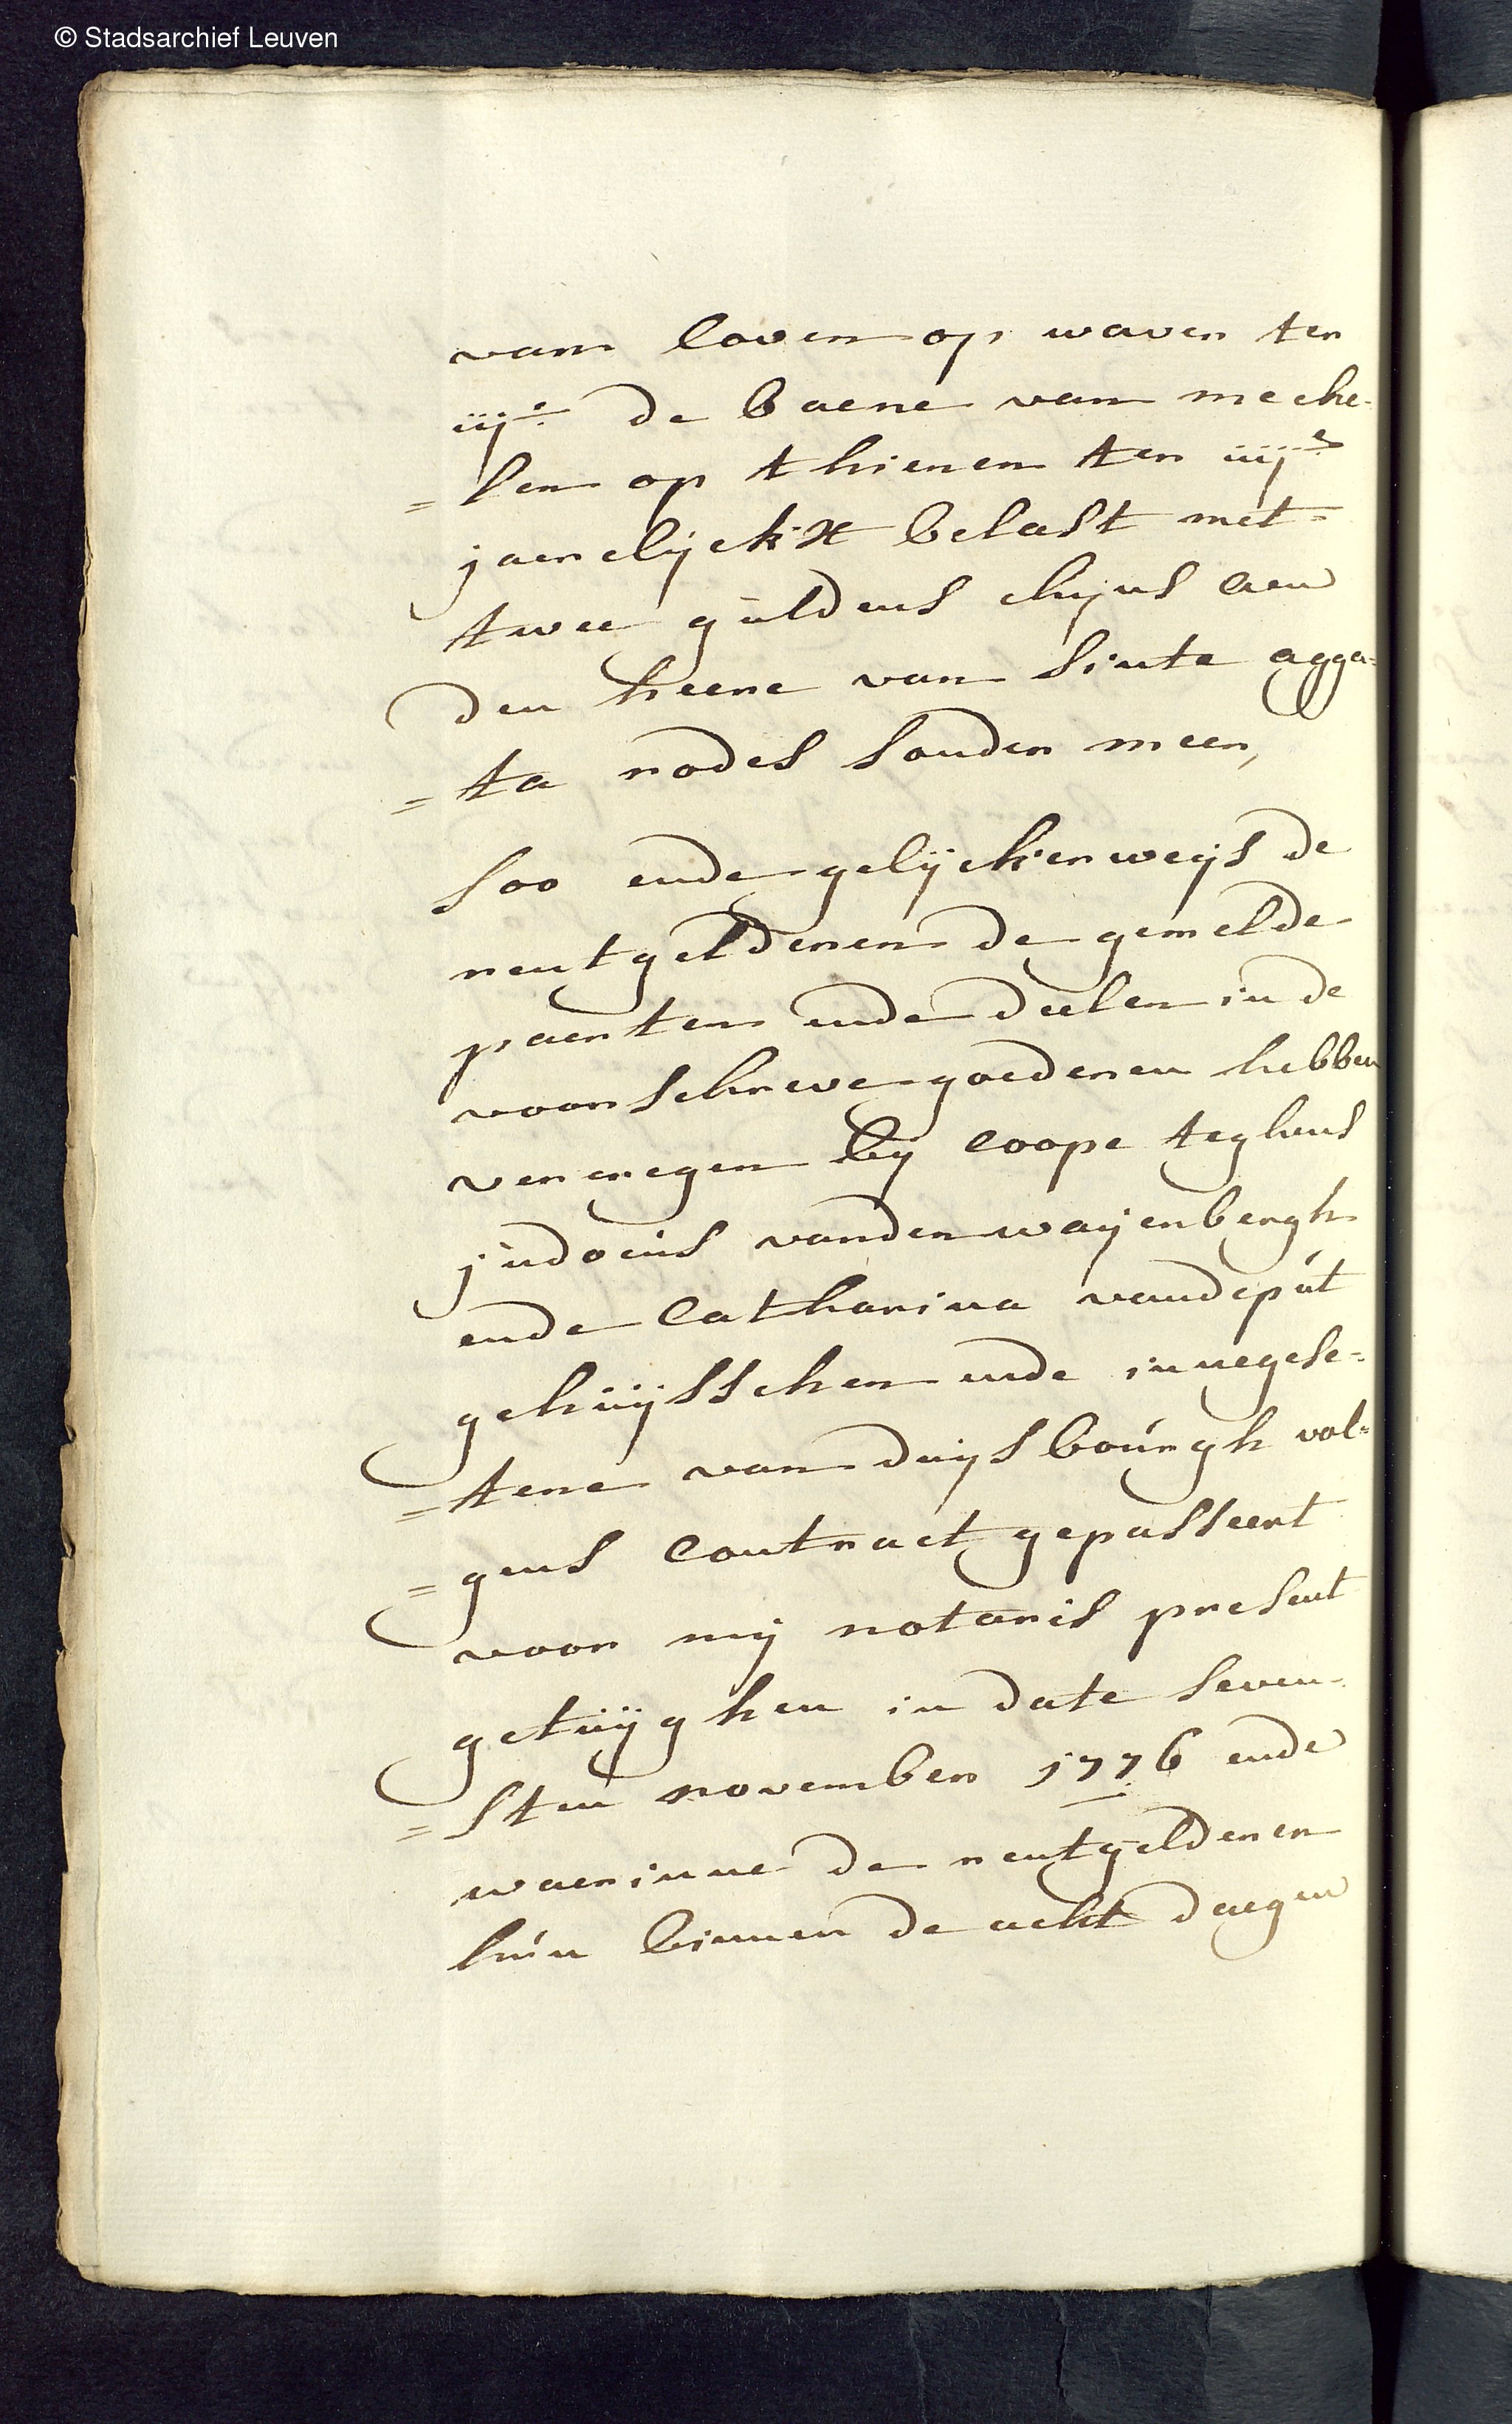 © Stadsarchief Leuven
van loven op waver ter
iije. de baene van meche-
=len op thienen ter iiije
jaerelyckx belast met=
twee guldens chyns aen
den heere van sinte agga=
=ta rodes sonder meer,
soo ende gelijckerweys de
rentgelderen de gemelde
paerten ende deelen in de
voorschreve goederen hebben
vercregen by coope teghens
judocus vanden wayenbergh
ende Catharina vandeput
gehuysschen ende innegese=
=tene van duysbourgh vol=
=gens Contract gepasseert
voor my notaris present
getuyghen in date seven-
=sten november 1776 ende
waerinne de rentgelderen
hun binnen de acht daegen